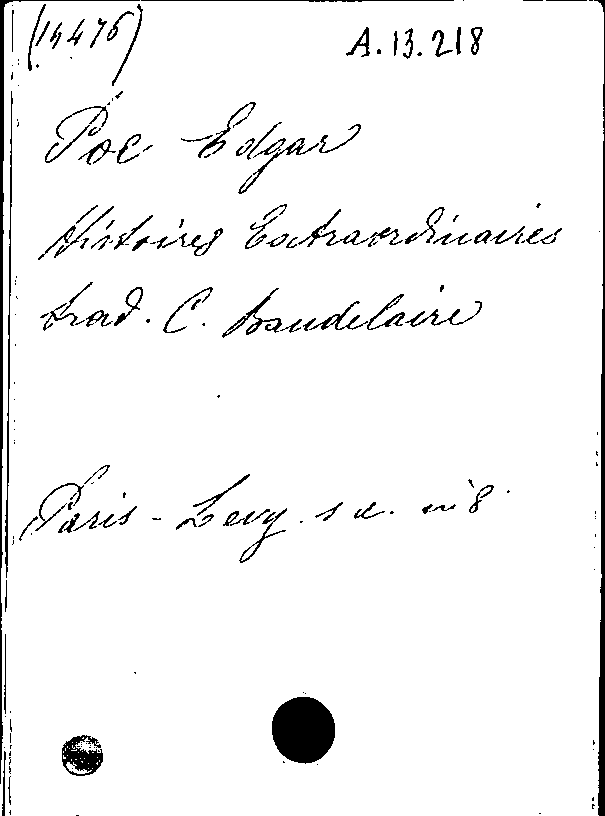 (14476)
A.13.218
Poe Edgar
Histoires Extraordinaires
trad. C. Baudelaire
Paris - Levy. s.d. in 8.